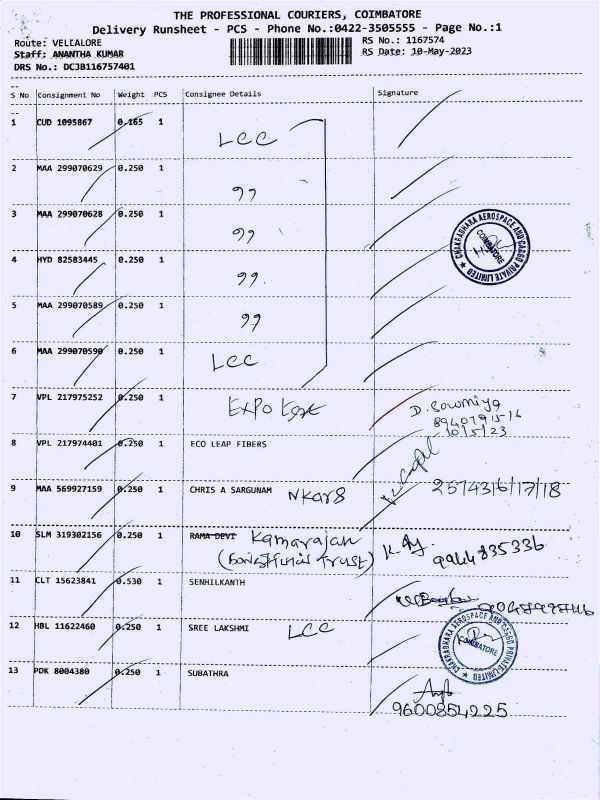 THE PROFESSIONAL COURIERS, COIMBATORE
Delivery Runsheet - PCS - Phone No.:0422-3505555 - Page No.:1
Route: VELLALORE
RS No.: 1167574
Staff: ANANTHA KUMAR
RS Date: 10-May-2023
DRS No.: DCJB116757401
S No Consignment No Weight PCS Consignee Details Signature
1 CUD 1095867 0.165 1 LCC
2 MAA 299070629 0.250 1 "
3 MAA 299070628 0.250 1 "
4 HYD 82583445 0.250 1 "
5 MAA 299070589 0.250 1 "
6 MAA 299070590 0.250 1 LCC
7 VPL 217975252 0.250 1 EXPO D. Sowmiya
10/5/23
8 VPL 217974401 0.250 1 ECO LEAP FIBERS
9 MAA 569927159 0.250 1 CHRIS A SARGUNAM
10 SLM 319302156 0.250 1 RAMA DEVI Kamarajan
Trust) 9944835336
11 CLT 15623841 0.530 1 SENHILKANTH
12 HBL 11622460 0.250 1 SREE LAKSHMI LCC
13 PDK 8004380 0.250 1 SUBATHRA
9600854225
CHAKRADHARA AEROSPACE AND CARGO PRIVATE LIMITED
COIMBATORE
CHAKRADHARA AEROSPACE AND CARGO PRIVATE LIMITED
COIMBATORE